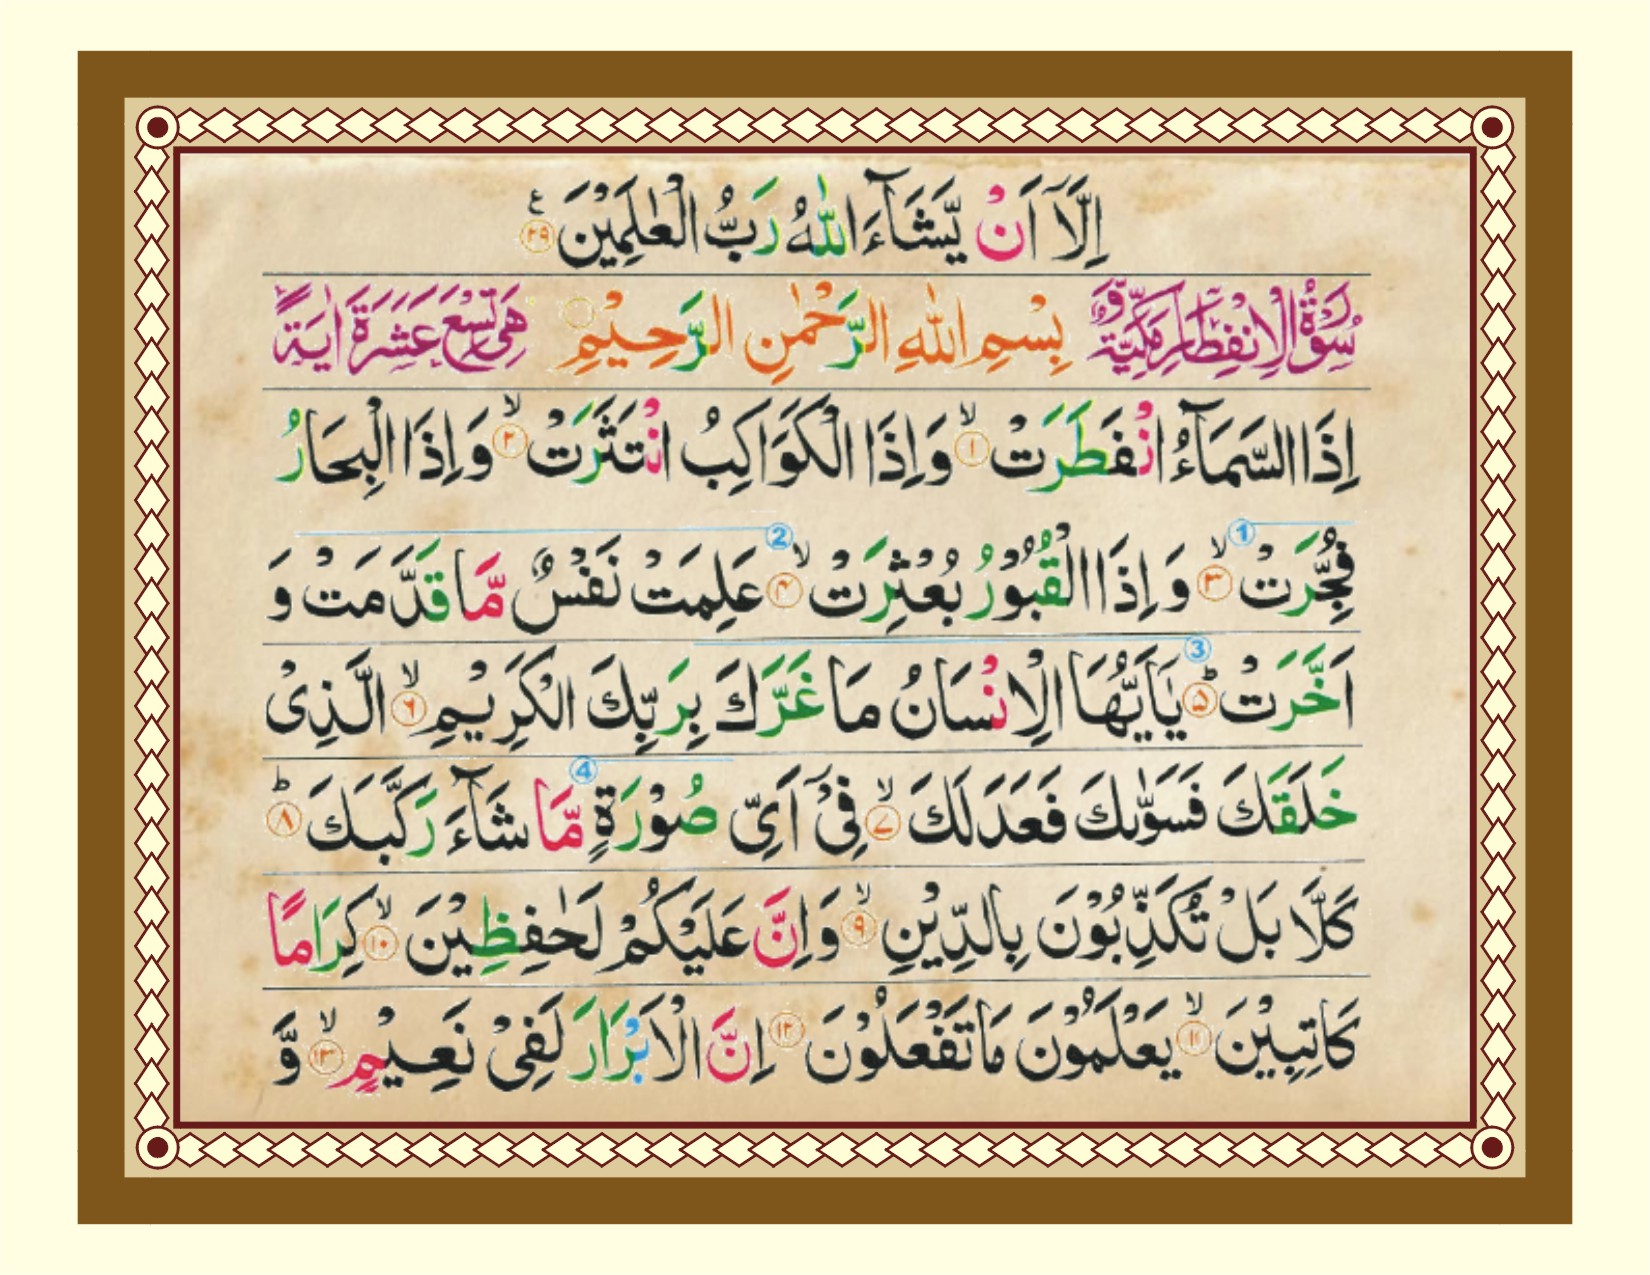 اِلَّاۤ اَنْ يَّشَآءَ اللّٰهُ رَبُّ الْعٰلَمِيْنَ ۲۹ ع
سُوْرَةُ الْاِنْفِطَارِ مَكِّيَّةٌ وَّ بِسْمِ اللّٰهِ الرَّحْمٰنِ الرَّحِيْمِ هِىَ تِسْعَ عَشَرَةَ اٰيَةً
اِذَا السَّمَآءُ انْفَطَرَتْ ۙ ۱ وَاِذَا الْكَوَاكِبُ انْتَثَرَتْ ۙ ۲ وَاِذَا الْبِحَارُ
فُجِّرَتْ ۙ ۳ 1 وَاِذَا الْقُبُوْرُ بُعْثِرَتْ ۙ ۴ 2 عَلِمَتْ نَفْسٌ مَّا قَدَّمَتْ وَ
اَخَّرَتْ ؕ ۵ 3 يٰۤاَيُّهَا الْاِنْسَانُ مَا غَرَّكَ بِرَبِّكَ الْكَرِيْمِ ۙ ۶ الَّذِىْ
خَلَقَكَ فَسَوّٰىكَ فَعَدَلَكَ ۙ ۷ فِىْۤ اَىِّ صُوْرَةٍ 4 مَّا شَآءَ رَكَّبَكَ ؕ ۸
كَلَّا بَلْ تُكَذِّبُوْنَ بِالدِّيْنِ ۙ ۹ وَاِنَّ عَلَيْكُمْ لَحٰفِظِيْنَ ۙ ۱۰ كِرَامًا
كَاتِبِيْنَ ۙ ۱۱ يَعْلَمُوْنَ مَا تَفْعَلُوْنَ ۱۲ اِنَّ الْاَبْرَارَ لَفِىْ نَعِيْمٍ ۙ ۱۳ وَّ